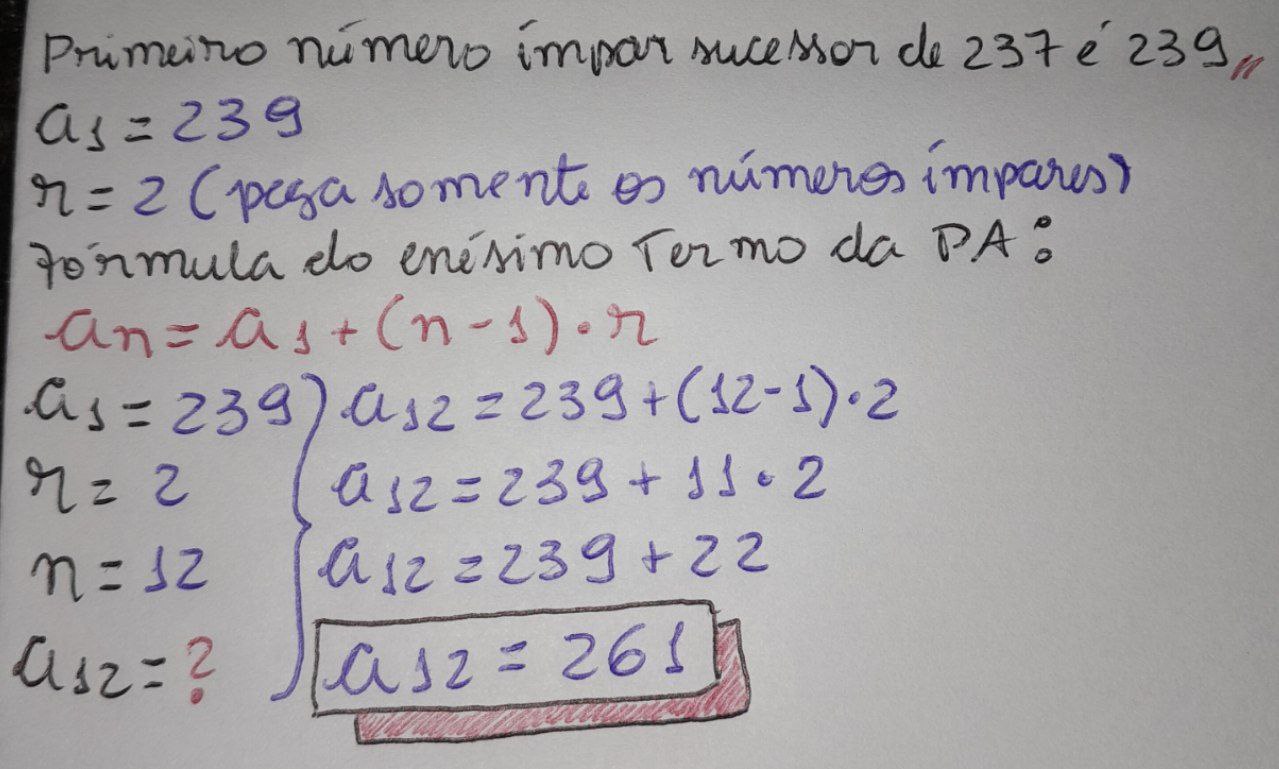 Primeiro número ímpar sucessor de 237 é 239,,
a1 = 239
r = 2 (pega somente os números ímpares)
Fórmula do enésimo Termo da PA:
an = a1 + (n - 1) · r
a1 = 239 } a12 = 239 + (12 - 1) · 2
r = 2 a12 = 239 + 11 · 2
n = 12 a12 = 239 + 22
a12 = ? a12 = 261